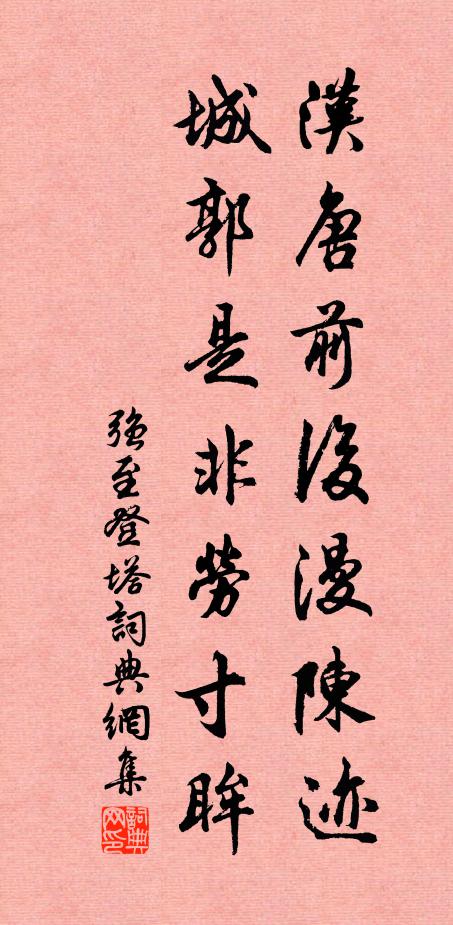 漢唐前後漫陳迹
城郭是非勞寸眸
強至登塔詞典網集
詞典网印